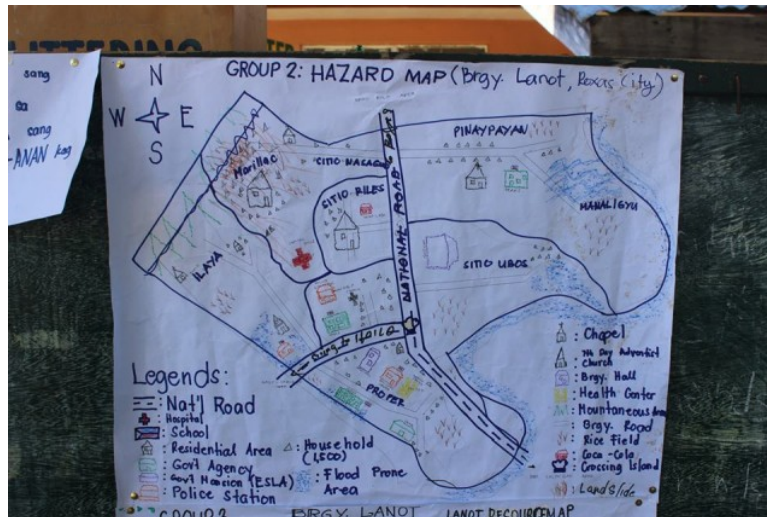 LITTERING
sang
sa
sang
-ANAN kag
N
W E
S
GROUP 2: HAZARD MAP (Brgy. Lanot, Roxas City)
PINAYPAYAN
Marillac
SITIO RILES
NATIONAL ROAD
MANALIGYU
SITIO UBOS
ILAYA
PROPER
Legends:
: Nat'l Road
: Hospital
: School
: Residential Area
: Household
(1,500)
: Gov't Agency
: Gov't Mansion (ESLA)
: Police Station
: Flood Prone
Area
: Chapel
: 7th Day Adventist
Church
: Brgy. Hall
: Health Center
: Mountainous Area
: Brgy. Road
: Rice Field
: Coca-Cola
: Crossing Island
: Landslide
GROUP 2
BRGY. LANOT
LANOT RECOURCEMAP